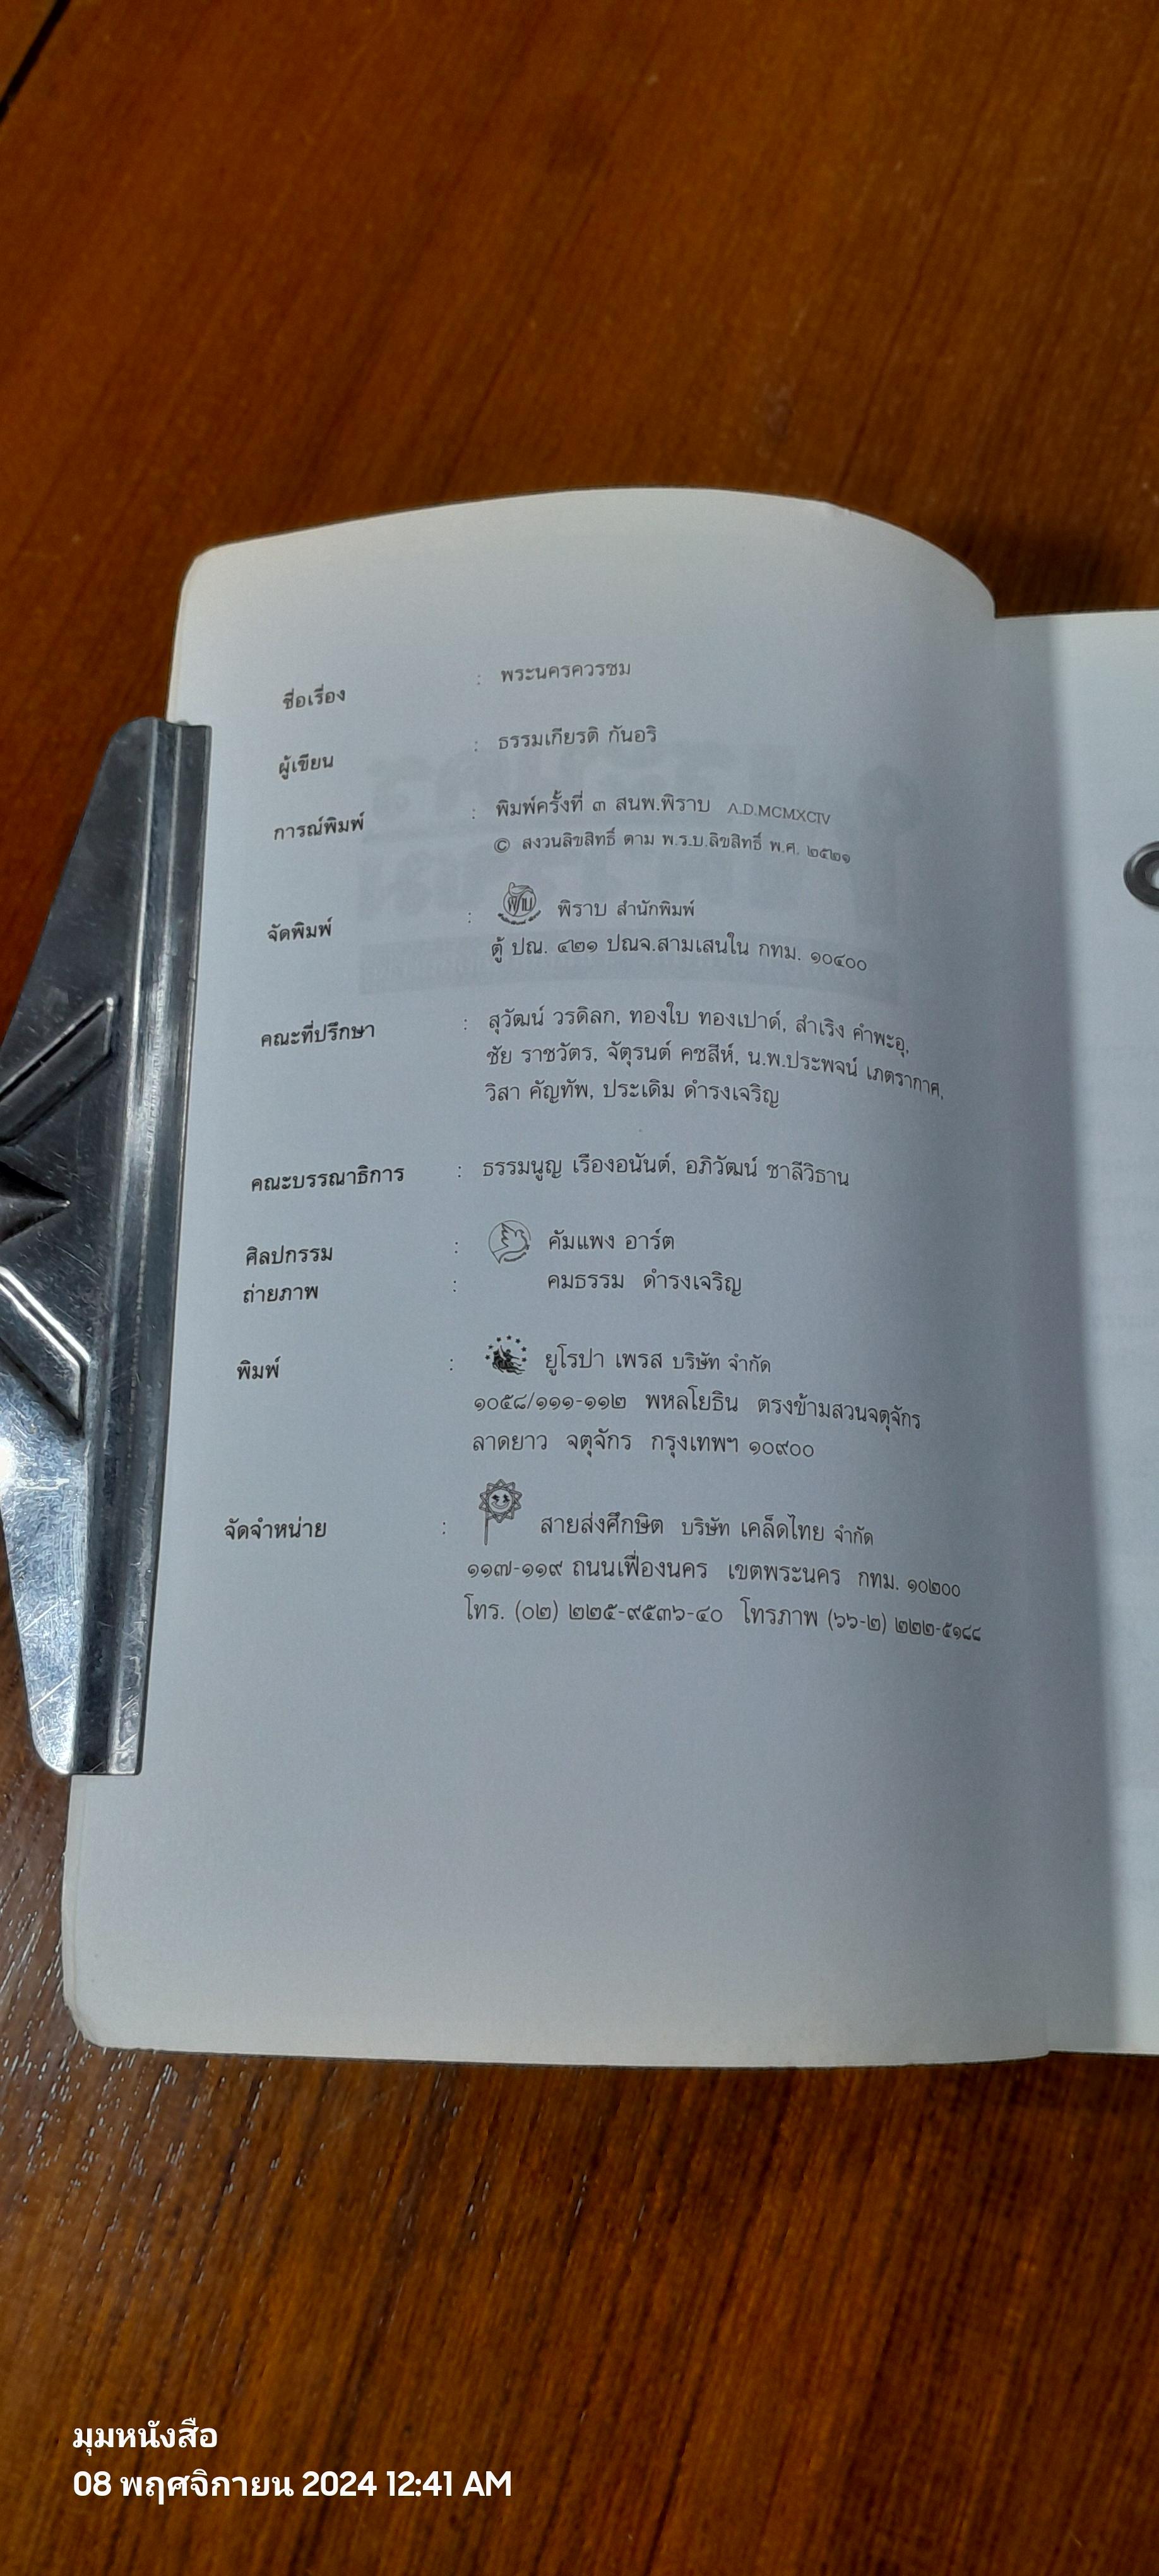 ชื่อเรื่อง : พระนครควรชม
ผู้เขียน : ธรรมเกียรติ กันอริ
การณ์พิมพ์ : พิมพ์ครั้งที่ ๓ สนพ.พิราบ A.D.MCMXCIV
© สงวนลิขสิทธิ์ ตาม พ.ร.บ.ลิขสิทธิ์ พ.ศ. ๒๕๒๑
จัดพิมพ์ : พิราบ พิราบ สำนักพิมพ์
ตู้ ปณ. ๔๒๑ ปณจ.สามเสนใน กทม. ๑๐๔๐๐
คณะที่ปรึกษา : สุวัฒน์ วรดิลก, ทองใบ ทองเปาด์, สำเริง คำพะอุ,
ชัย ราชวัตร, จัตุรนต์ คชสีห์, น.พ.ประพจน์ เภตรากาศ,
วิสา คัญทัพ, ประเดิม ดำรงเจริญ
คณะบรรณาธิการ : ธรรมนูญ เรืองอนันต์, อภิวัฒน์ ชาลีวิธาน
ศิลปกรรม : คัมแพง อาร์ต
ถ่ายภาพ : คมธรรม ดำรงเจริญ
พิมพ์ : ยูโรปา เพรส บริษัท จำกัด
๑๐๕๘/๑๑๑-๑๑๒ พหลโยธิน ตรงข้ามสวนจตุจักร
ลาดยาว จตุจักร กรุงเทพฯ ๑๐๙๐๐
จัดจำหน่าย : สายส่งศึกษิต บริษัท เคล็ดไทย จำกัด
๑๑๗-๑๑๙ ถนนเฟื่องนคร เขตพระนคร กทม. ๑๐๒๐๐
โทร. (๐๒) ๒๒๕-๙๕๓๖-๔๐ โทรภาพ (๖๖-๒) ๒๒๒-๕๑๘๘
มุมหนังสือ
08 พฤศจิกายน 2024 12:41 AM